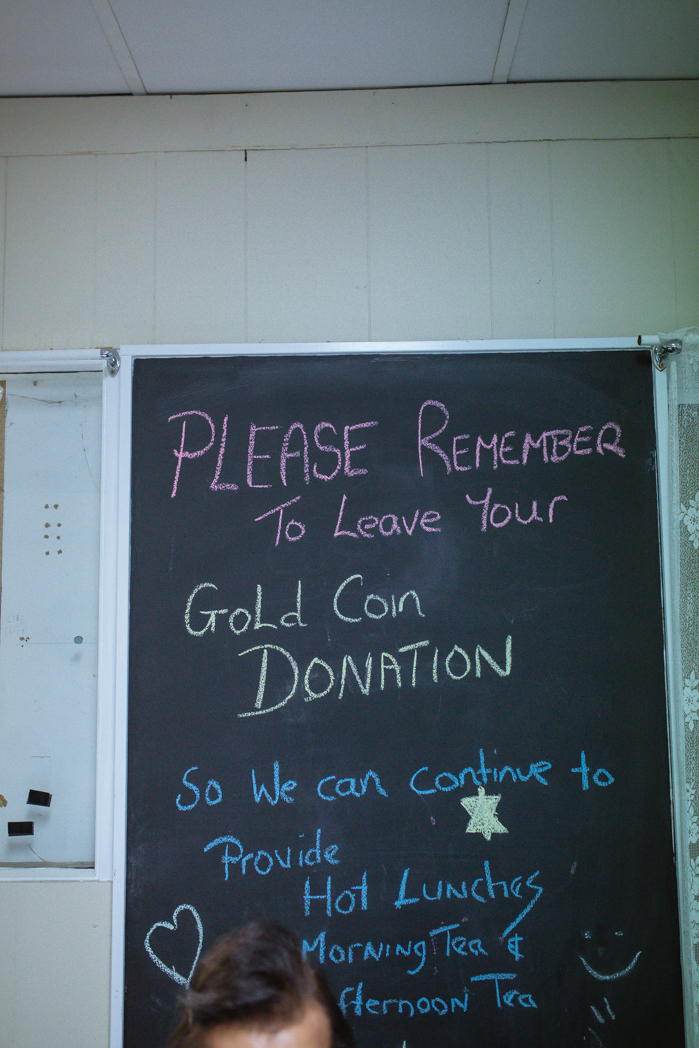 PLEASE REMEMBER
To Leave Your
GoLd Coin
DONATION
So We can continue to
Provide
Hot LUNChes
MORNING Tea &
fternoon Tea